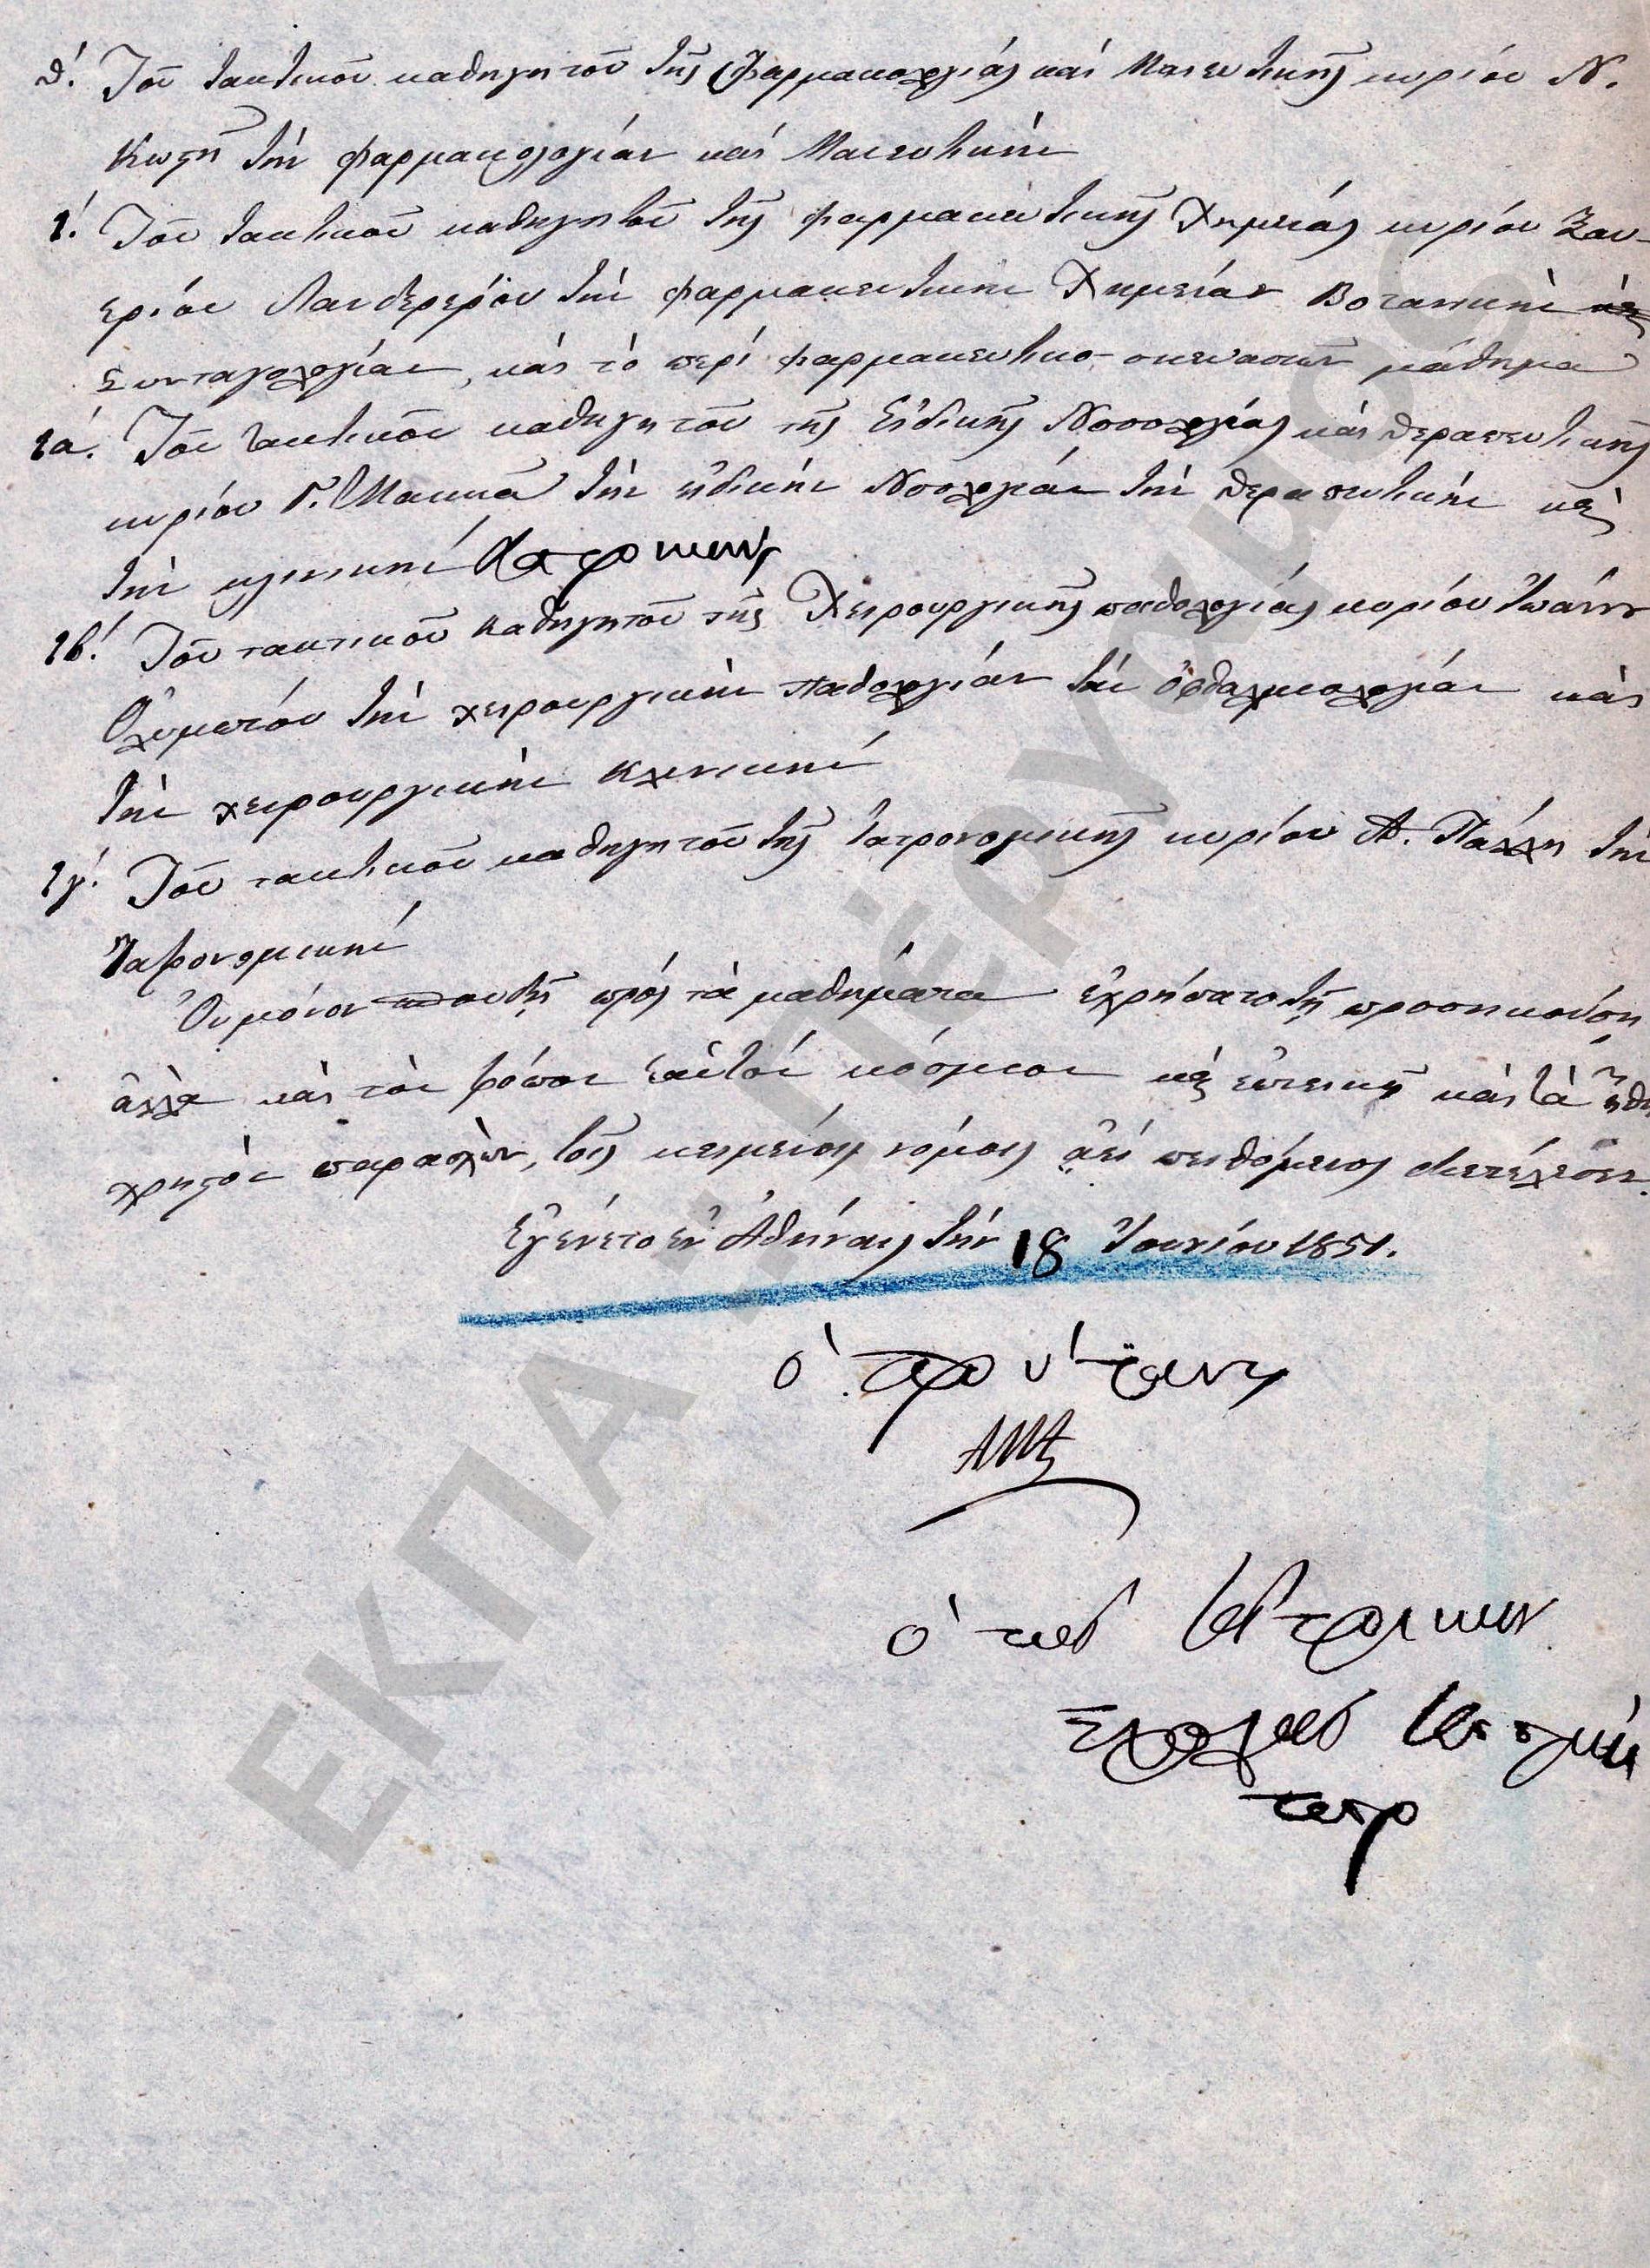 θ′. Τοῦ τακτικοῦ καθηγητοῦ τῆς Φαρμακολογίας καὶ Μαιευτικῆς κυρίου Ν.
Κωστῆ τὴν φαρμακολογίαν καὶ Μαιευτικήν
ι′. Τοῦ τακτικοῦ καθηγητοῦ τῆς φαρμακευτικῆς Χημείας κυρίου Ξαυ-
ερίου Λανδερέρου τὴν φαρμακευτικὴν Χημείαν Βοτανικὴν καὶ
Συνταγολογίαν, καὶ τὸ περὶ φαρμακευτικο-σκευασιῶν μάθημα
ια′. Τοῦ τακτικοῦ καθηγητοῦ τῆς Εἰδικῆς Νοσολογίας καὶ θεραπευτικῆς
κυρίου Γ. Μακκᾶ τὴν εἰδικὴν Νοσολογίαν τὴν θεραπευτικὴν καὶ
τὴν κλινικὴν
ιβ′. Τοῦ τακτικοῦ καθηγητοῦ τῆς Χειρουργικῆς παθολογίας κυρίου Ἰωάννου
Ὀλυμπίου τὴν χειρουργικὴν παθολογίαν τὴν ὀφθαλμολογίαν καὶ
τὴν χειρουργικὴν Κλινικήν
ιγ′. Τοῦ τακτικοῦ καθηγητοῦ τῆς Ἰατρονομικῆς κυρίου Α. Πάλλη τὴν
Ἰατρονομικήν
Οὐ μόνον πρὸς τὰ μαθήματα ἐχρήσατο τῇ προσηκούσῃ
ἀλλὰ καὶ τὸν τρόπον ἑαυτὸν κόσμιον καὶ ἐπιεικῆ καὶ τὰ ἤθη
χρηστὸν παρασχὼν, τοῖς κειμένοις νόμοις ἀεὶ πειθόμενος διετέλεσεν.
Ἐγένετο ἐν Ἀθήναις τὴν 18 Ἰουνίου 1851.
ὁ πρύτανις
ὁ τῆς Ἰατρικῆς
Σχολῆς
ΕΚΠΑ - ΠΕΡΓΑΜΟΣ